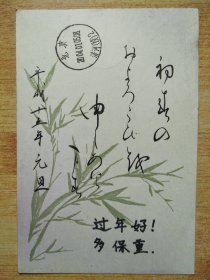 初春の
およろこびを
申しあげ
ます
平成
元旦
过年好!
多保重.